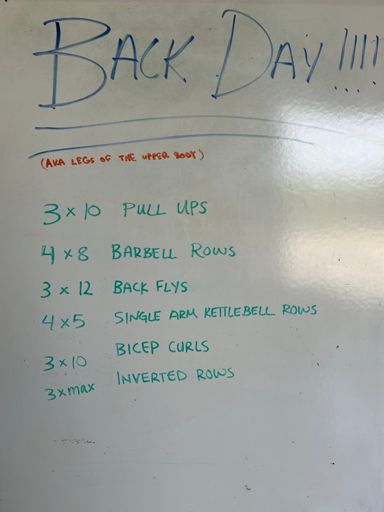 BACK DAY !!!!
(AKA LEGS OF THE UPPER BODY)
3 x 10 PULL UPS
4 x 8 BARBELL ROWS
3 x 12 BACK FLYS
4 x 5 SINGLE ARM KETTLEBELL ROWS
3 x 10 BICEP CURLS
3 x max INVERTED ROWS